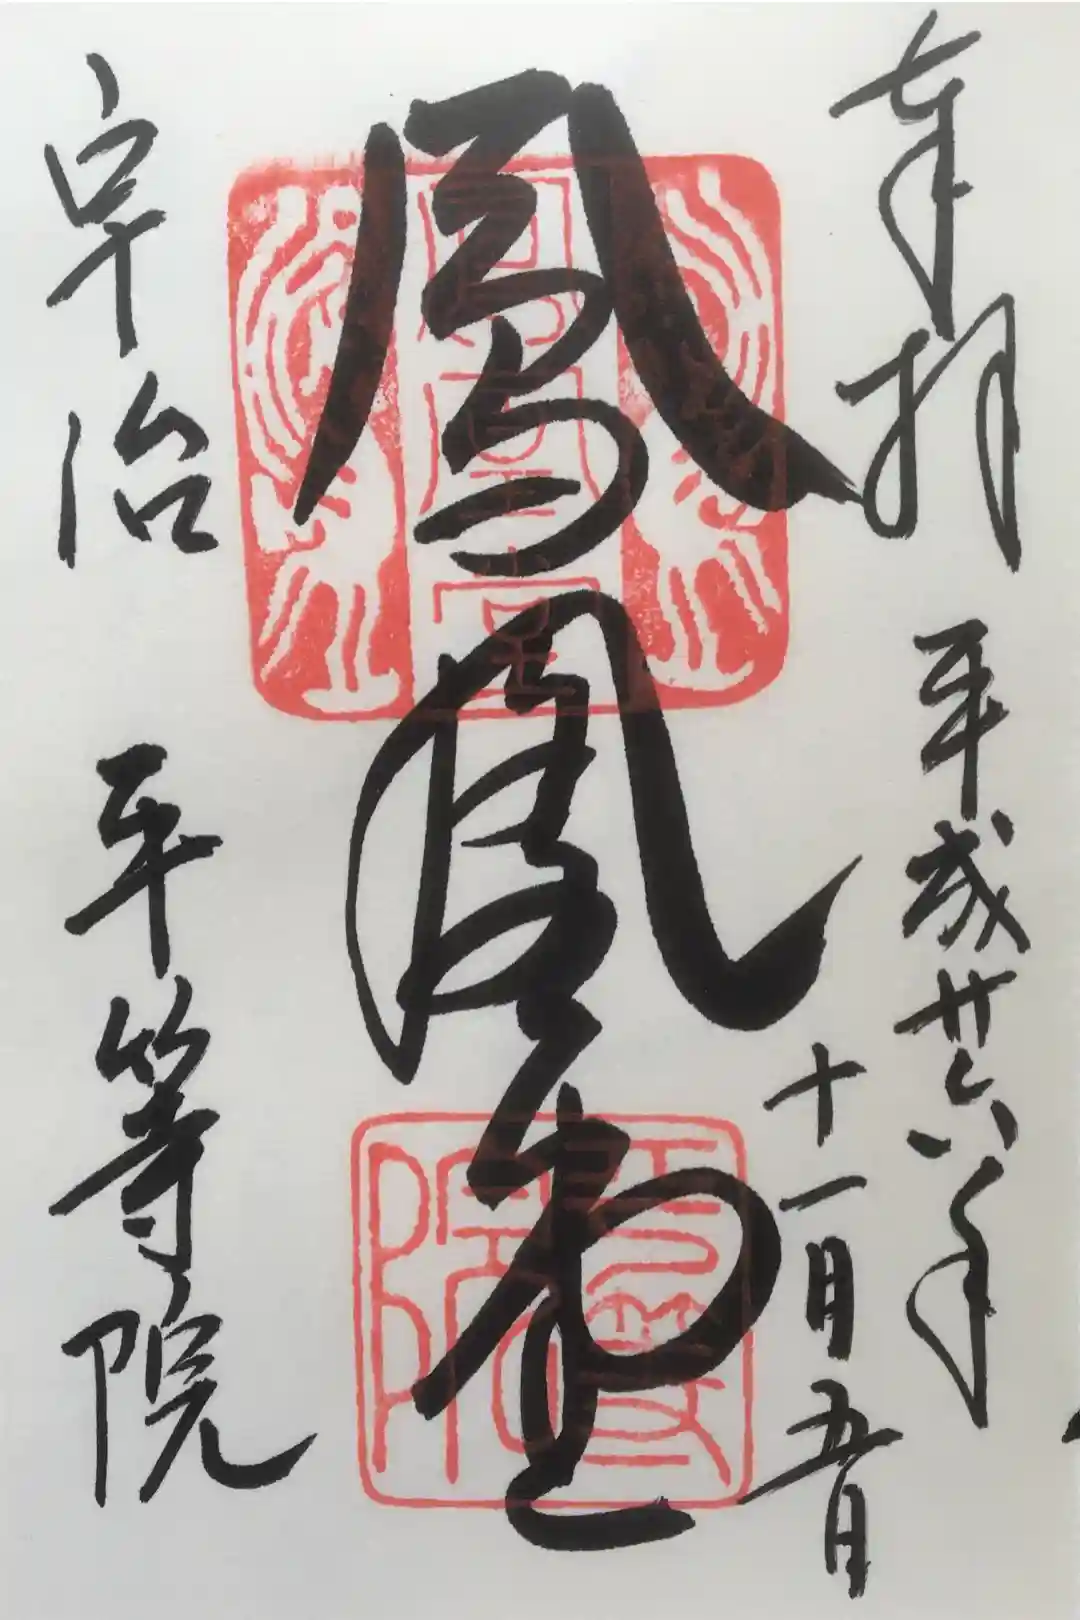 奉拝 平成廿六年
十一月五日
鳳凰堂
宇治 平等院